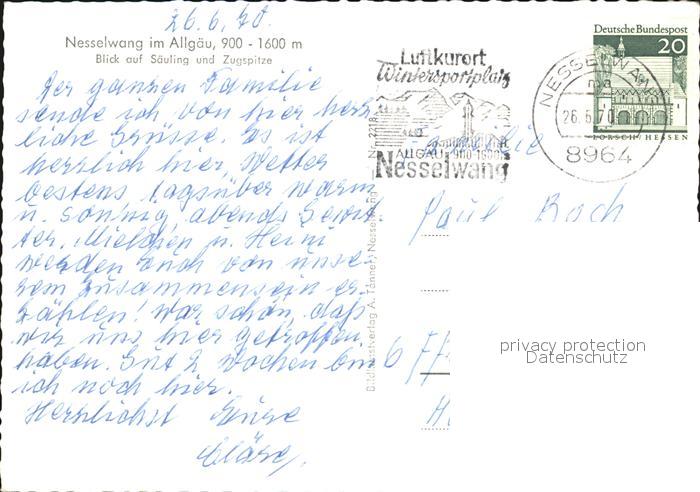 26.6.70.
Nesselwang im Allgäu, 900 - 1600 m
Blick auf Säuling und Zugspitze
Der ganzen Familie
sende ich von hier herz
liche Grüsse. Es ist
herrlich hier, Wetter
bestens, tagsüber warm
u. sonnig, abends Gewit
ter. u. Heini
werden euch von unse-
rem Zusammensein er-
zählen! War schön, daß
wir uns hier getroffen
haben. 2 Wochen bin
ich noch hier.
Herzlichst Eure
Cläre.
Luftkurort
Wintersportplatz
ALLGÄU 900-1600m
Nesselwang
NESSELWANG
26.6.70
8964
Deutsche Bundespost
20
LORSCH/HESSEN
Familie
Paul Koch
6
H
Bildkunstverlag A. Tanner, Nesselwang
Nr. 2218
privacy protection
Datenschutz